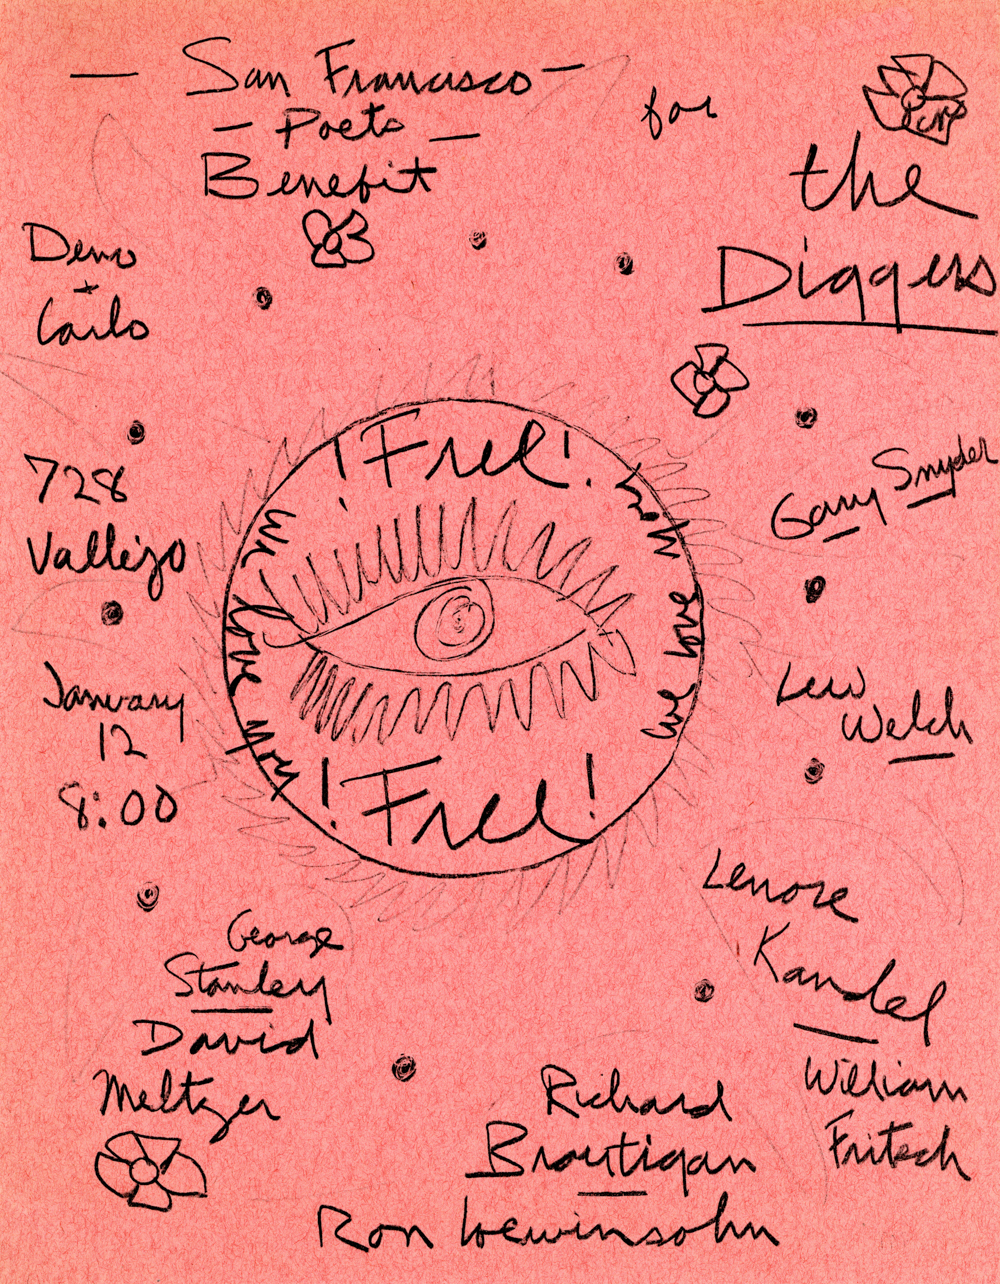 — San Francisco —
— Poets —
Benefit
for
the
Diggers
Deno
+
Carlo
728
Vallejo
January
12
8:00
! Free !
we love you
we love you
! Free !
Gary Snyder
Lew
Welch
Lenore
Kandel
William
Fritsch
Richard
Brautigan
Ron Loewinsohn
George
Stanley
David
Meltzer